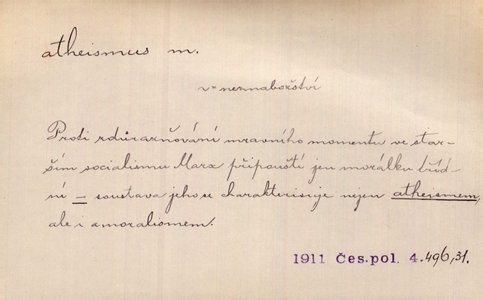 atheismus m.
v= neznabožství
Proti zdůrazňování mravního momentu ve star-
ším socialismu Marx připouští jen morálku třid-
ní — soustava jeho se charakterisuje nejen atheismem,
ale i amoralismem.
1911 Čes.pol. 4. 496, 31.